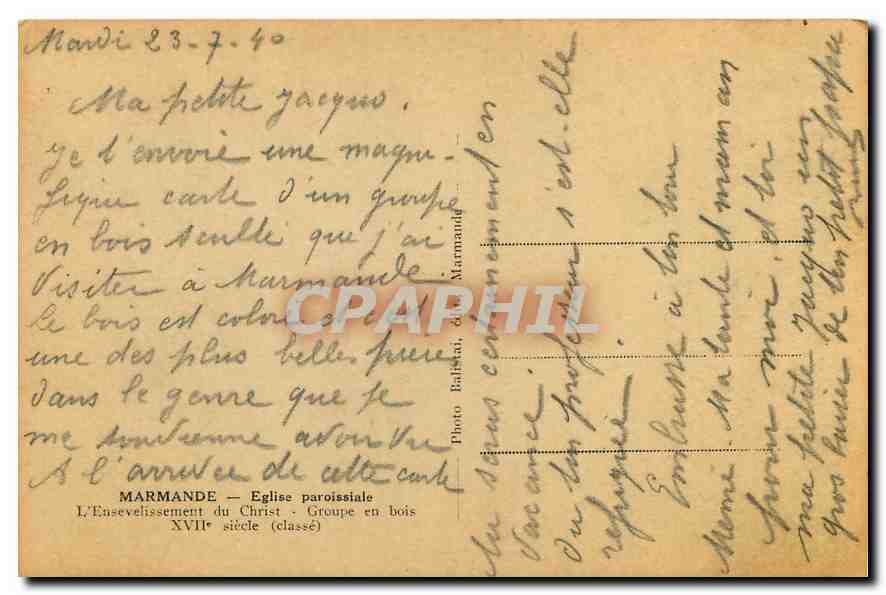 Mardi 23-7-40
Ma petite Jacquo.
Je t'envoie une magni-
fique carte d'un groupe
en bois sculté que j'ai
visiter à Marmande.
Le bois est coloré et c'est
une des plus belles pièces
dans le genre que je
me souvienne avoir vu
A l'arrivée de cette carte
MARMANDE — Eglise paroissiale
L'Ensevelissement du Christ - Groupe en bois
XVIIe siècle (classé)
Photo Balistai, Marmande
tu seras certainement en
vacance.
du ton professeur s'est-elle
refugiée.
Embrasse à ton tour
Mémé. Ma tante et maman
pour moi, et toi
ma petite Jacquo un
gros baiser de ton petit papa
CPAPHIL